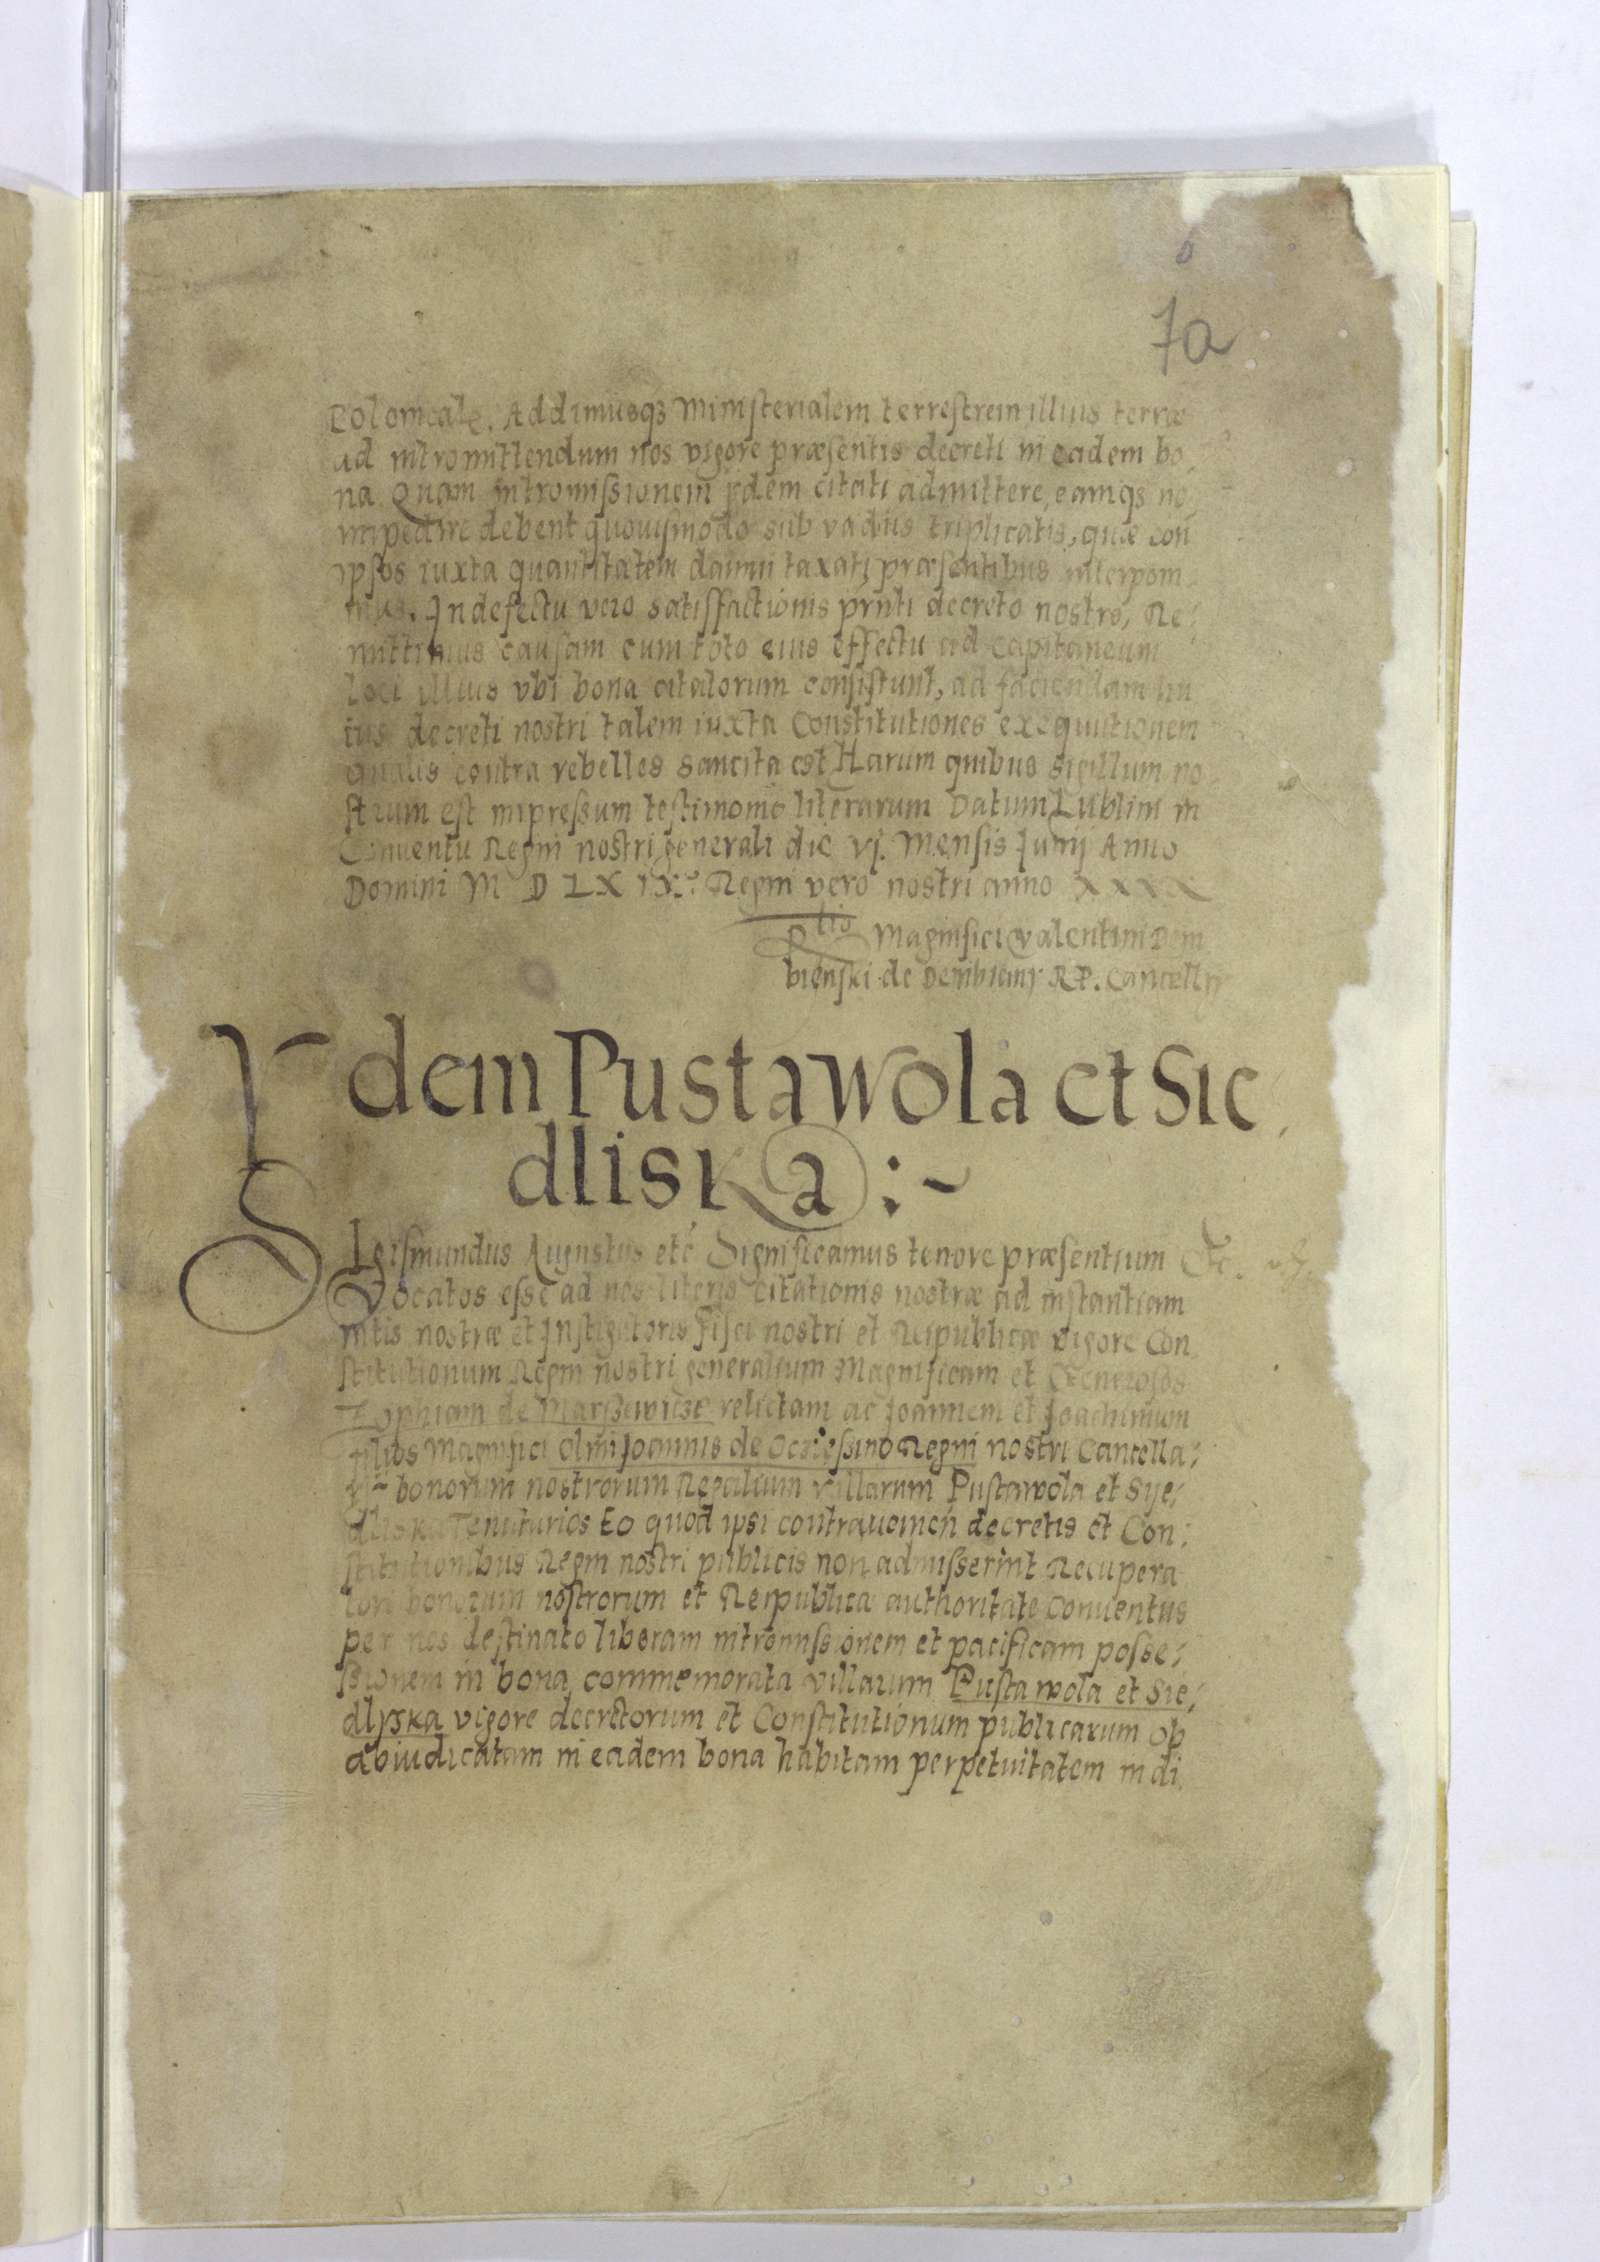 7a
Colomeale. Addimusqȝ Ministerialem terrestrem illius terræ
ad intromittendum nos vigore præsentis decreti in eadem bo,
na Quam intromissionem ijdem citati admittere, eamqȝ no,
impedire debent quouismodo sub vadiis triplicatis, quæ con
ipsos iuxta quantitatem damni taxati præsentibus interponi,
mus. In defectu vero satisfactionis prnti decreto nostro, Re;
mittimus causam cum toto eius effectu ad Capitaneum
loci illius vbi bona citatorum consistunt, ad faciendam hu
ius decreti nostri talem iuxta Constitutiones exequutionem
qualis contra rebelles sancita est Harum quibus sigillum no
strum est impressum testimonio literarum Datum Lublini in
Conuentu Regni nostri generali die vj. Mensis Junij Anno
Domini M D LX IX. Regni vero nostri anno XXXX
Rtio Magnifici Valentini Dem
bienski de Dembiany R. P. Cancellr
Ydem Pustawola et Sie,
dliska :~
Sigismundus Augustus etc̄ Significamus tenore præsentium
Vocatos esse ad nos literis citationis nostræ ad instantiam
mtis nostræ et Instigatoris fisci nostri et Reipublicæ vigore Con
stitutionum Regni nostri generalium Magnificam et Generosos
Zophiam de relictam ac Joannem et Joachimum
filios Magnifici olim Joannis de Ocziessino Regni nostri Cancella;
rij bonorum nostrorum Regalium villarum Pustawola et Sye;
dliska Tenutarios Eo quod ipsi contraueinen decretis et Con;
stitutionibus Regni nostri publicis non admisserint Recupera
tori bonorum nostrorum et Reipublica authoritate Conuentus
per nos destinato liberam intromissionem et pacificam posse;
ssionem in bona commemorata villarum Pustawola et Sie,
dlyska vigore decretorum et Constitutionum publicarum ob
abiudicatam in eadem bona habitam perpetuitatem in di,